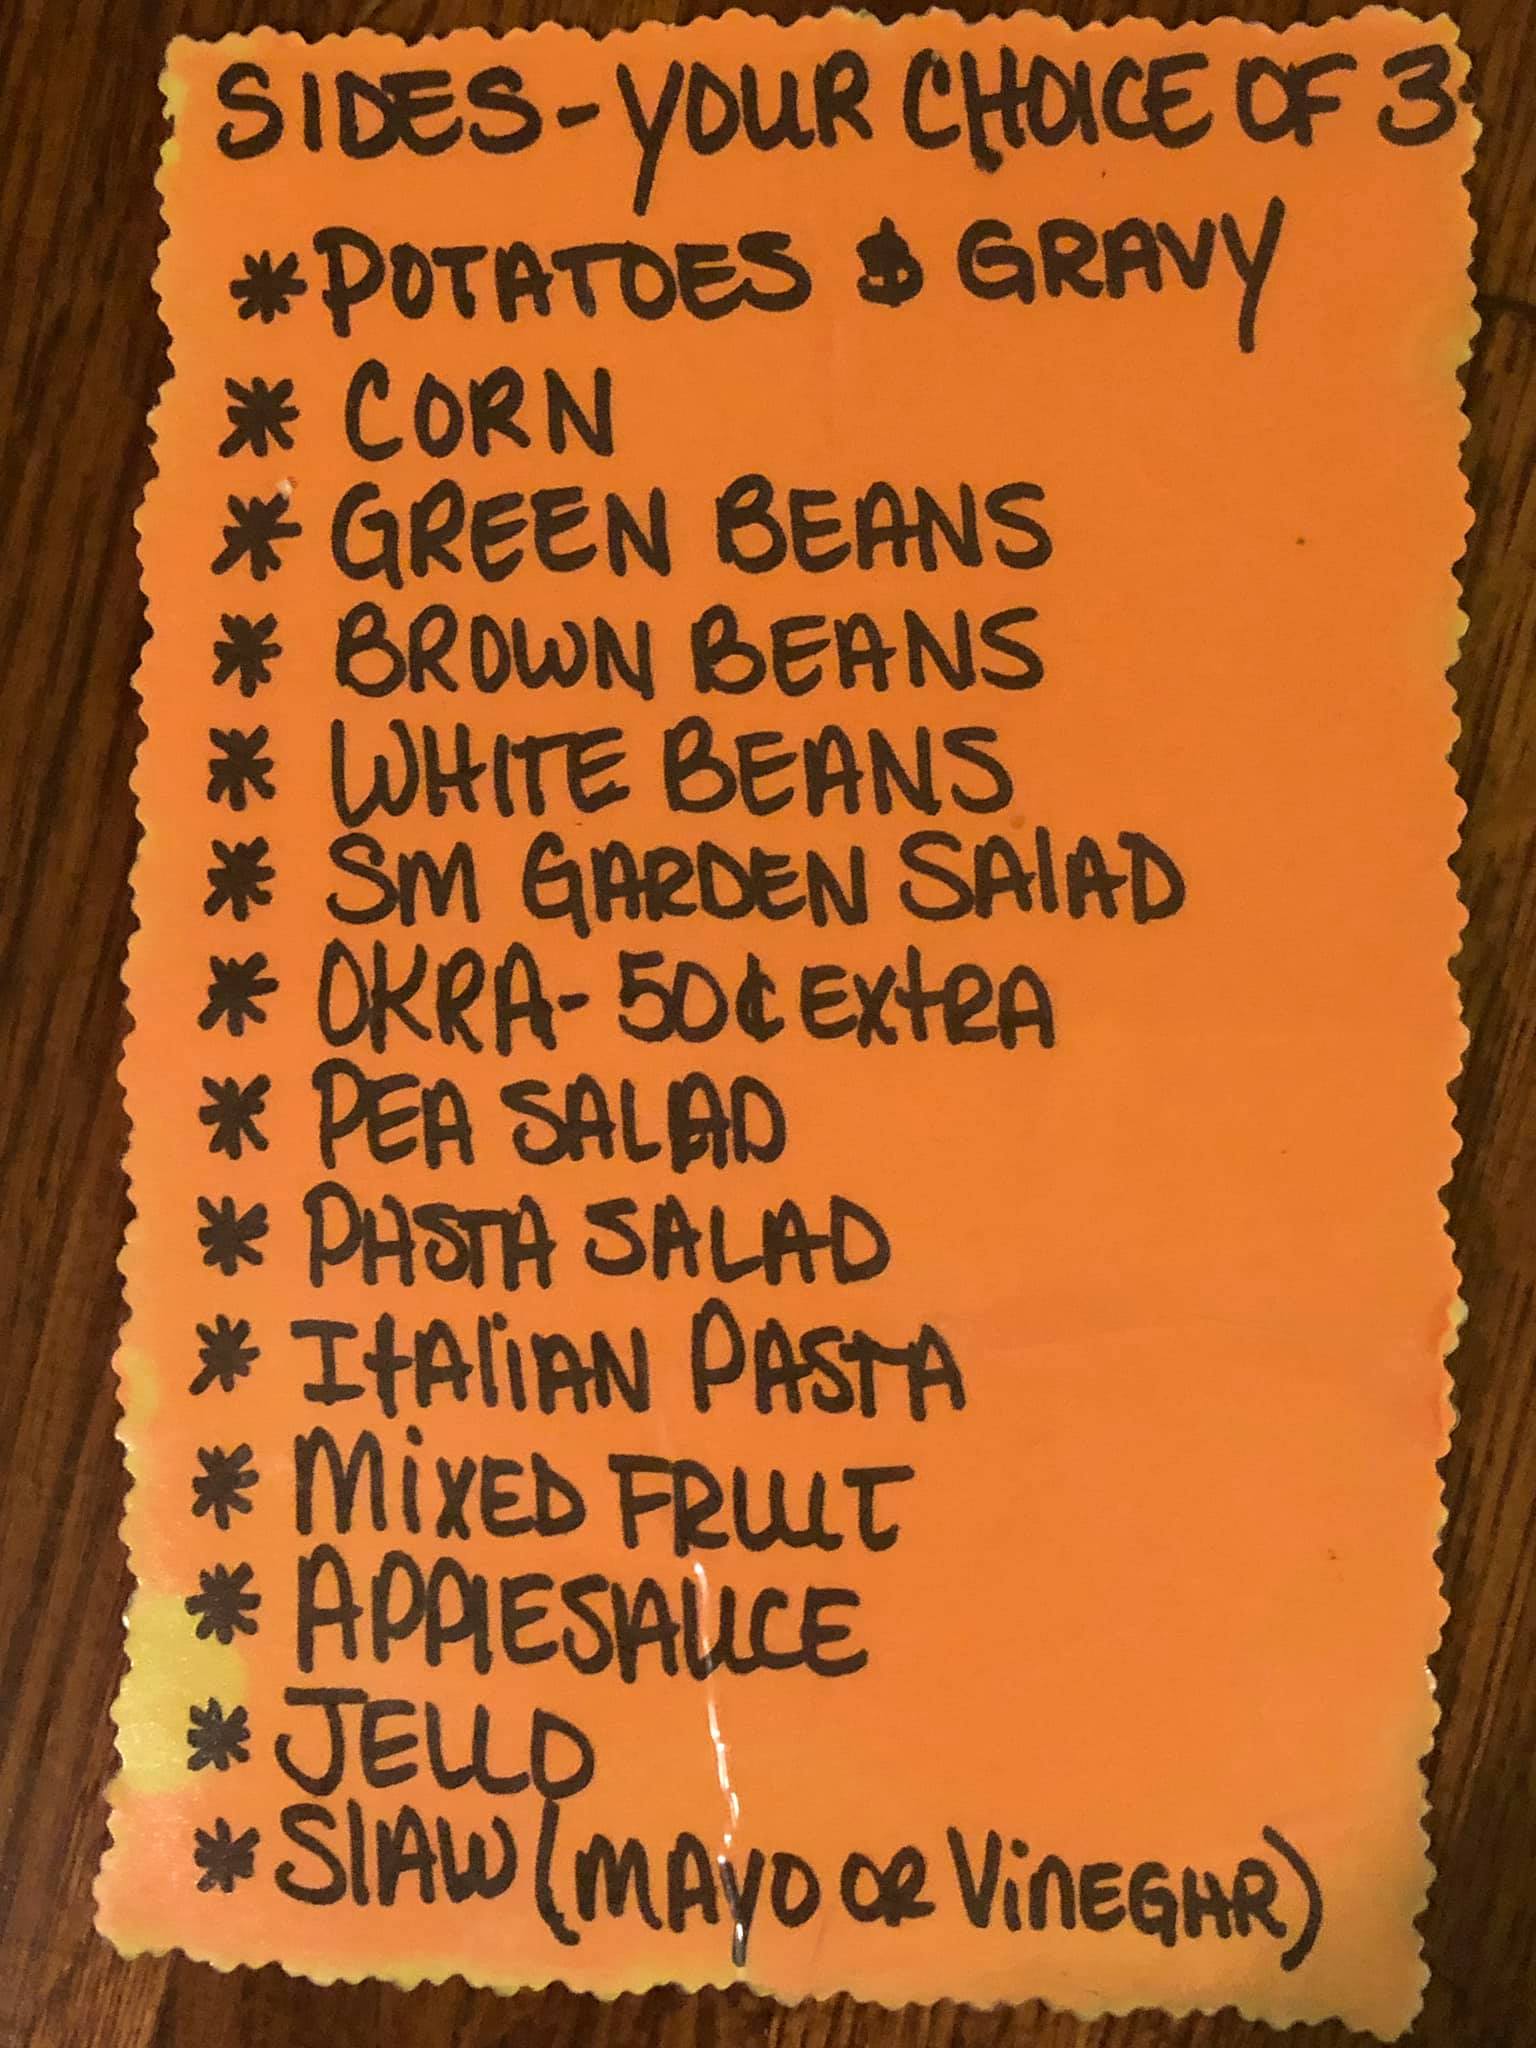 SIDES-YOUR CHOICE OF 3
* POTATOES & GRAVY
* CORN
* GREEN BEANS
* BROWN BEANS
* WHITE BEANS
* SM GARDEN SAlAD
* OKRA- 50¢ EXtRA
* PEA SALAD
* PASTA SALAD
* ItAliAN PASTA
* MiXED FRUIT
* APPlESAUCE
* JELLO
* SlAW (MAYO OR ViNEGAR)